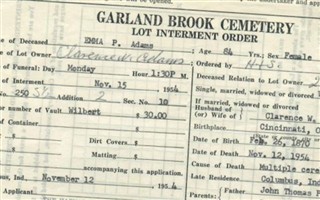 GARLAND BROOK CEMETERY
LOT INTERMENT ORDER
of Deceased EMMA P. Adams ; Age 84 Yrs.; Sex Female
of Lot Owner Clarence W. Adams ; Ordered by H+S.
of Funeral: Day Monday Hour 1:30P M. Deceased Relation to Lot Owner
of Interment Nov. 15 1954 Single, married, widowed
No. 250 S½ Addition 2 Sec. No. 10 If married, widowed or divorced
number of Vault Wilbert $ 30.00 Husband (or) Wife of Clarence W.
Container Birthplace Cincinnati, O
Dirt Covers Date of Birth Feb. 26, 1870
Matting Date of Death Nov. 12, 1954
accompanying this application. Cause of Death Multiple cere
bus, Ind., November 12 1954 Late Residence Columbus, Ind
Applicant Parents: Father John Thomas P